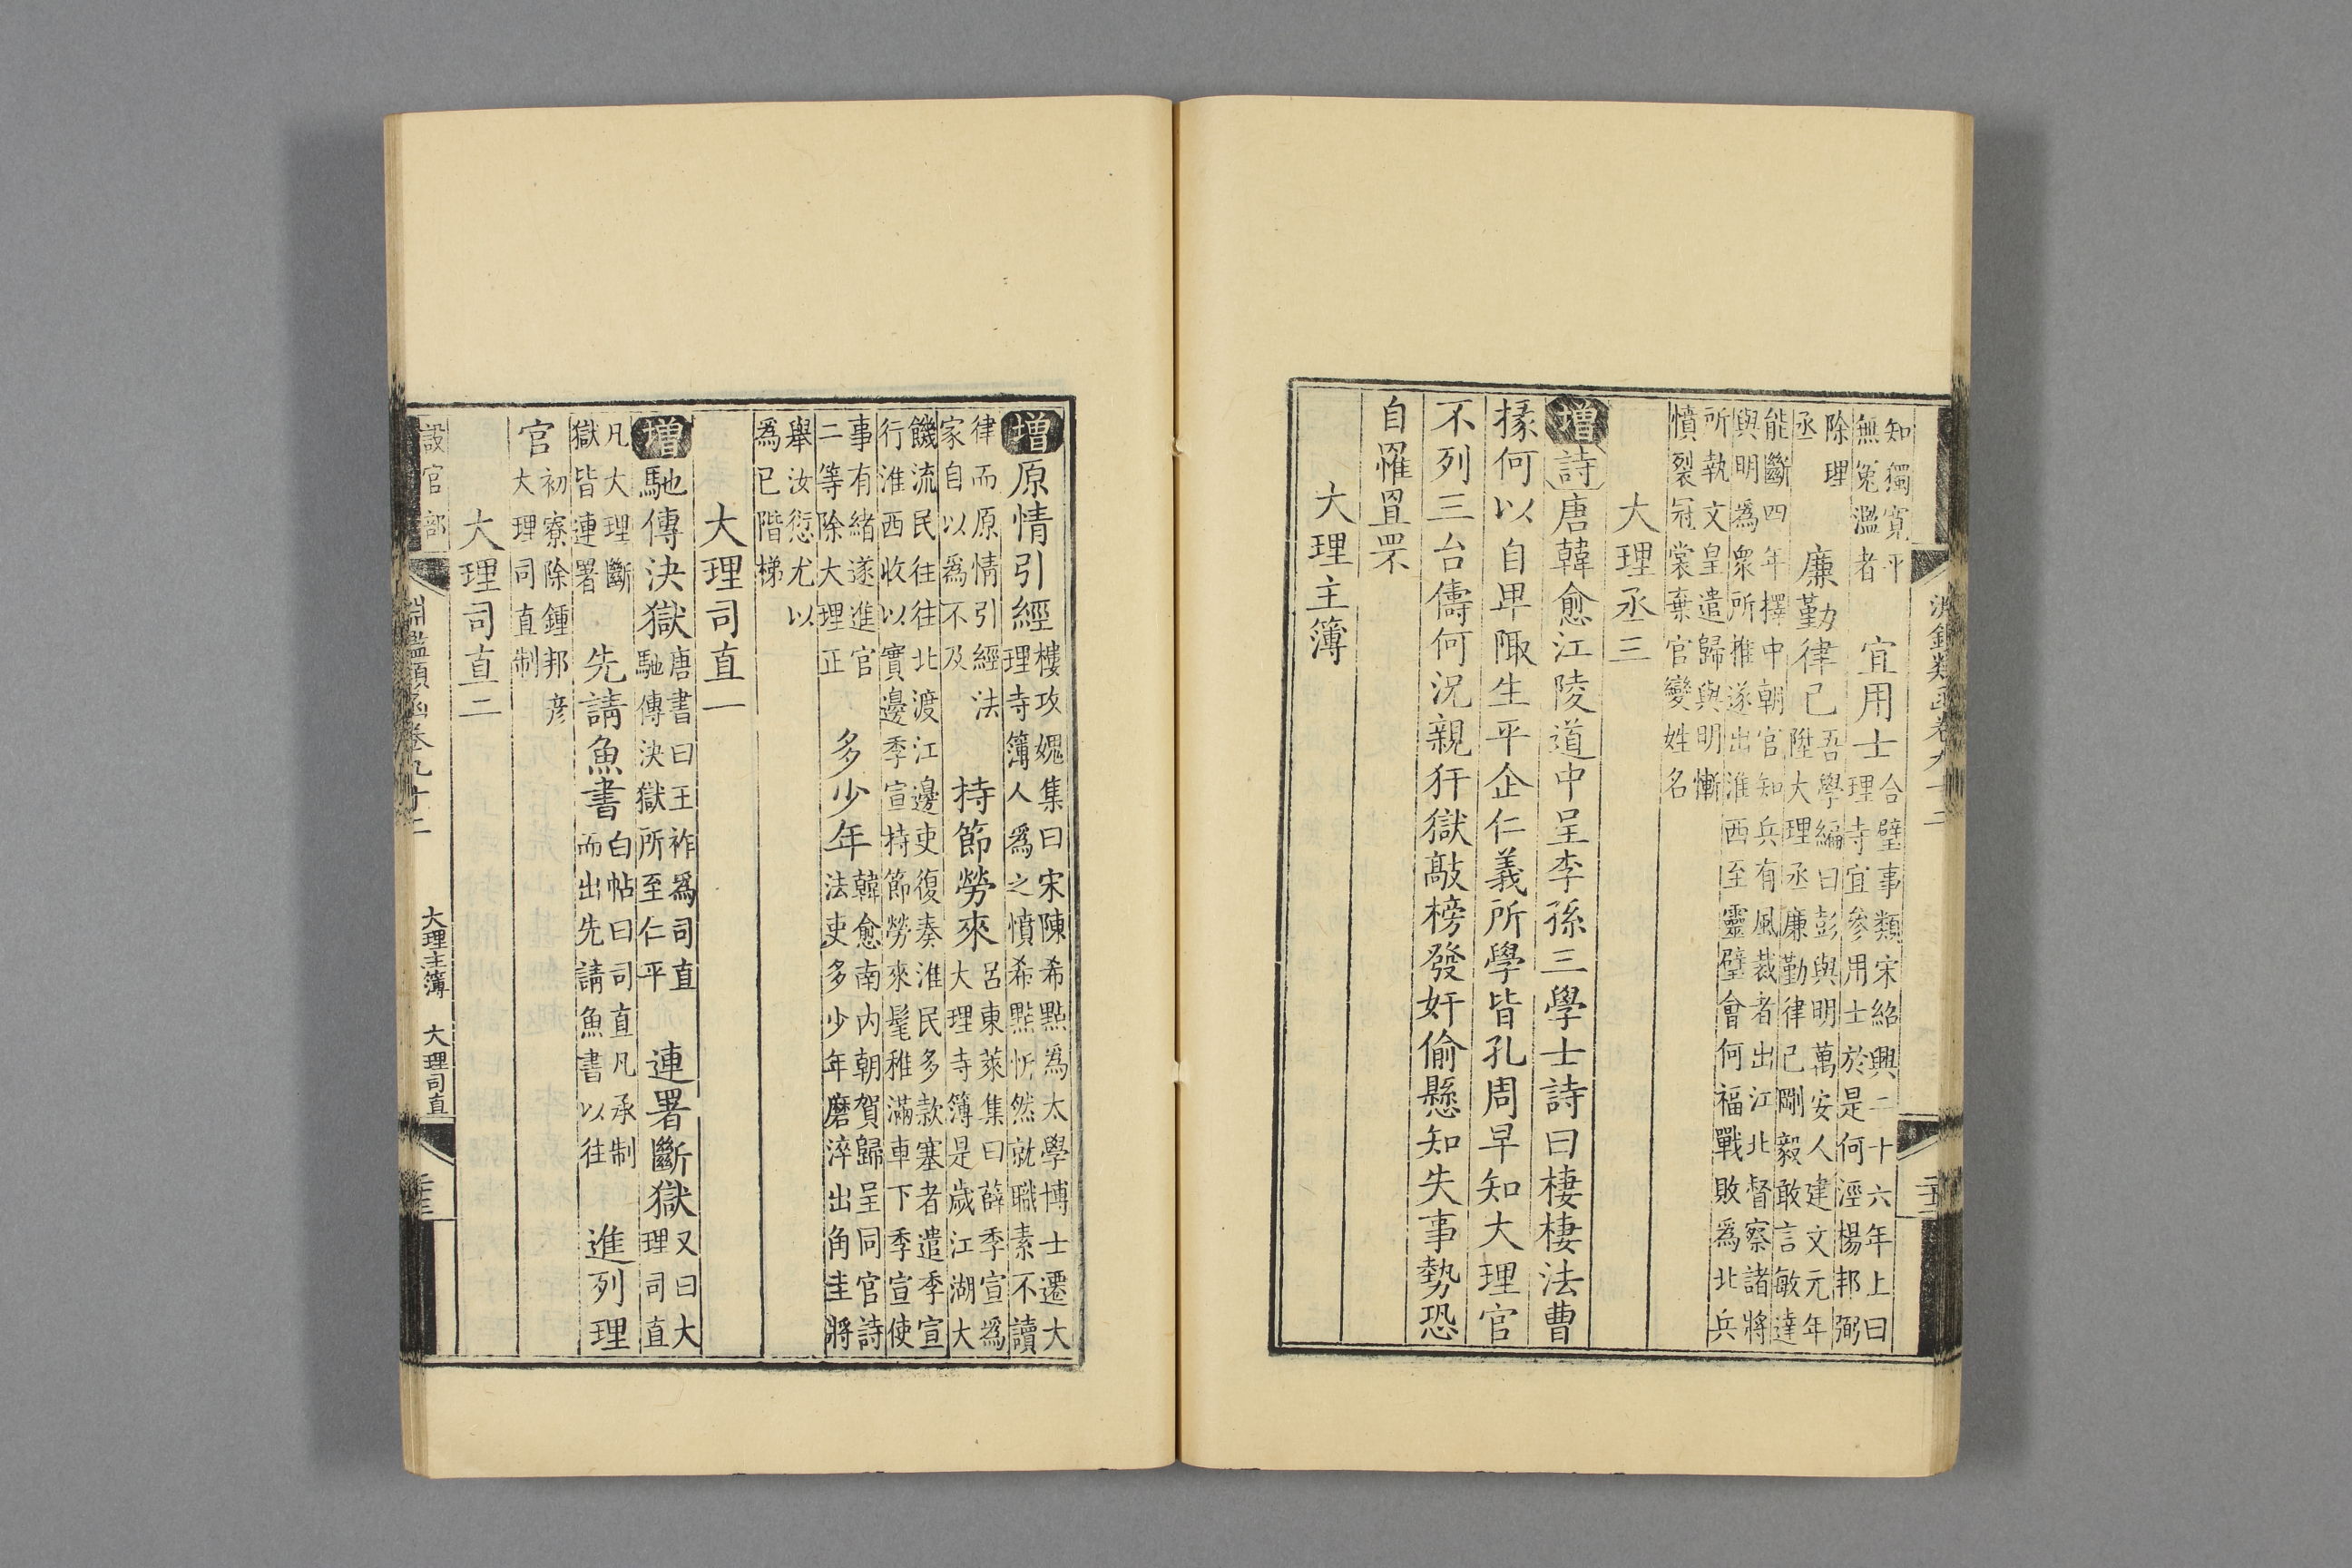 知獨寛平
無冤濫者
宜用士
合璧事類宋紹興二十六年上曰
理寺宜參用士於是何逕楊邦弼
除理
丞
廉勤律己
吾學編曰彭與明萬安人建文元年
陞大理丞廉勤律己剛毅敢言敏達
能斷四年擇中朝官知兵有風裁者出江北督察諸將
與明爲衆所推遂出淮西至靈璧會何福戰敗爲北兵
所執文皇遣歸與明慚
憤裂冠裳棄官變姓名
大理丞三
增詩唐韓愈江陵道中呈李孫三學士詩曰棲棲法曹
掾何以自卑陬生平企仁義所學皆孔周早知大理官
不列三台儔何況親犴獄敲榜發奸偷懸知失事勢恐
自罹罝罘
大理主簿
增原情引經
樓攻媿集曰宋陳希點爲太學博士遷大
理寺簿人爲之憤希點忻然就職素不讀
律而原情引經法
家自以爲不及
持節勞來
呂東萊集曰薛季宣爲
大理寺簿是歲江湖大
饑流民往往北渡江邊吏復奏淮民多款塞者遣季宣
行淮西收以實邊季宣持節勞來髦稚滿車下季宣使
事有緒遂進官
二等除大理正
多少年
韓愈南内朝賀歸呈同官詩
法吏多少年磨淬出角圭將
舉汝愆尤以
爲已階梯
大理司直一
增馳傳決獄
唐書曰王祚爲司直
馳傳決獄所至仁平
連署斷獄
又曰大
理司直
凡大理斷
獄皆連署
先請魚書
白帖曰司直凡承制
而出先請魚書以往
進列理
官
初寮除鍾邦彦
大理司直制
大理司直二
設官部
淵鑑類函卷九十二
大理主簿 大理司直